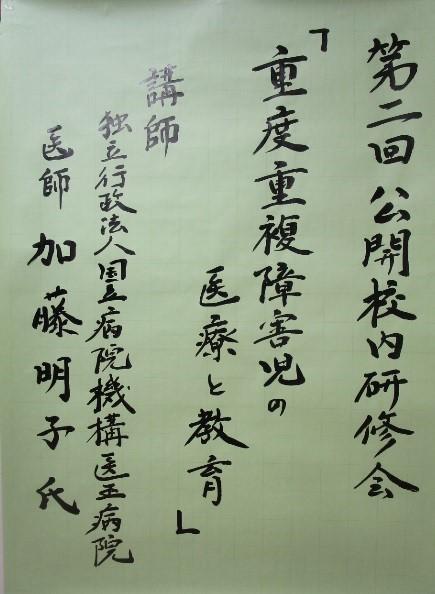 第二回公開校内研修会
「重度重複障害児の
医療と教育」
講師
独立行政法人国立病院機構医王病院
医師 加藤明子氏